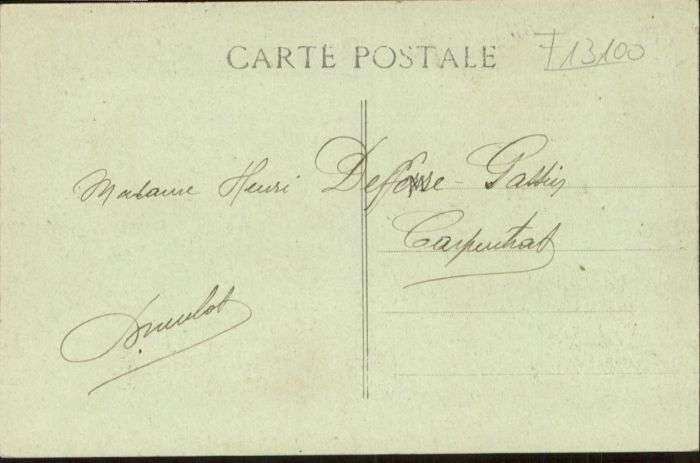 CARTE POSTALE
13100
Madame Henri Deffosse - Gattin
Carpentras